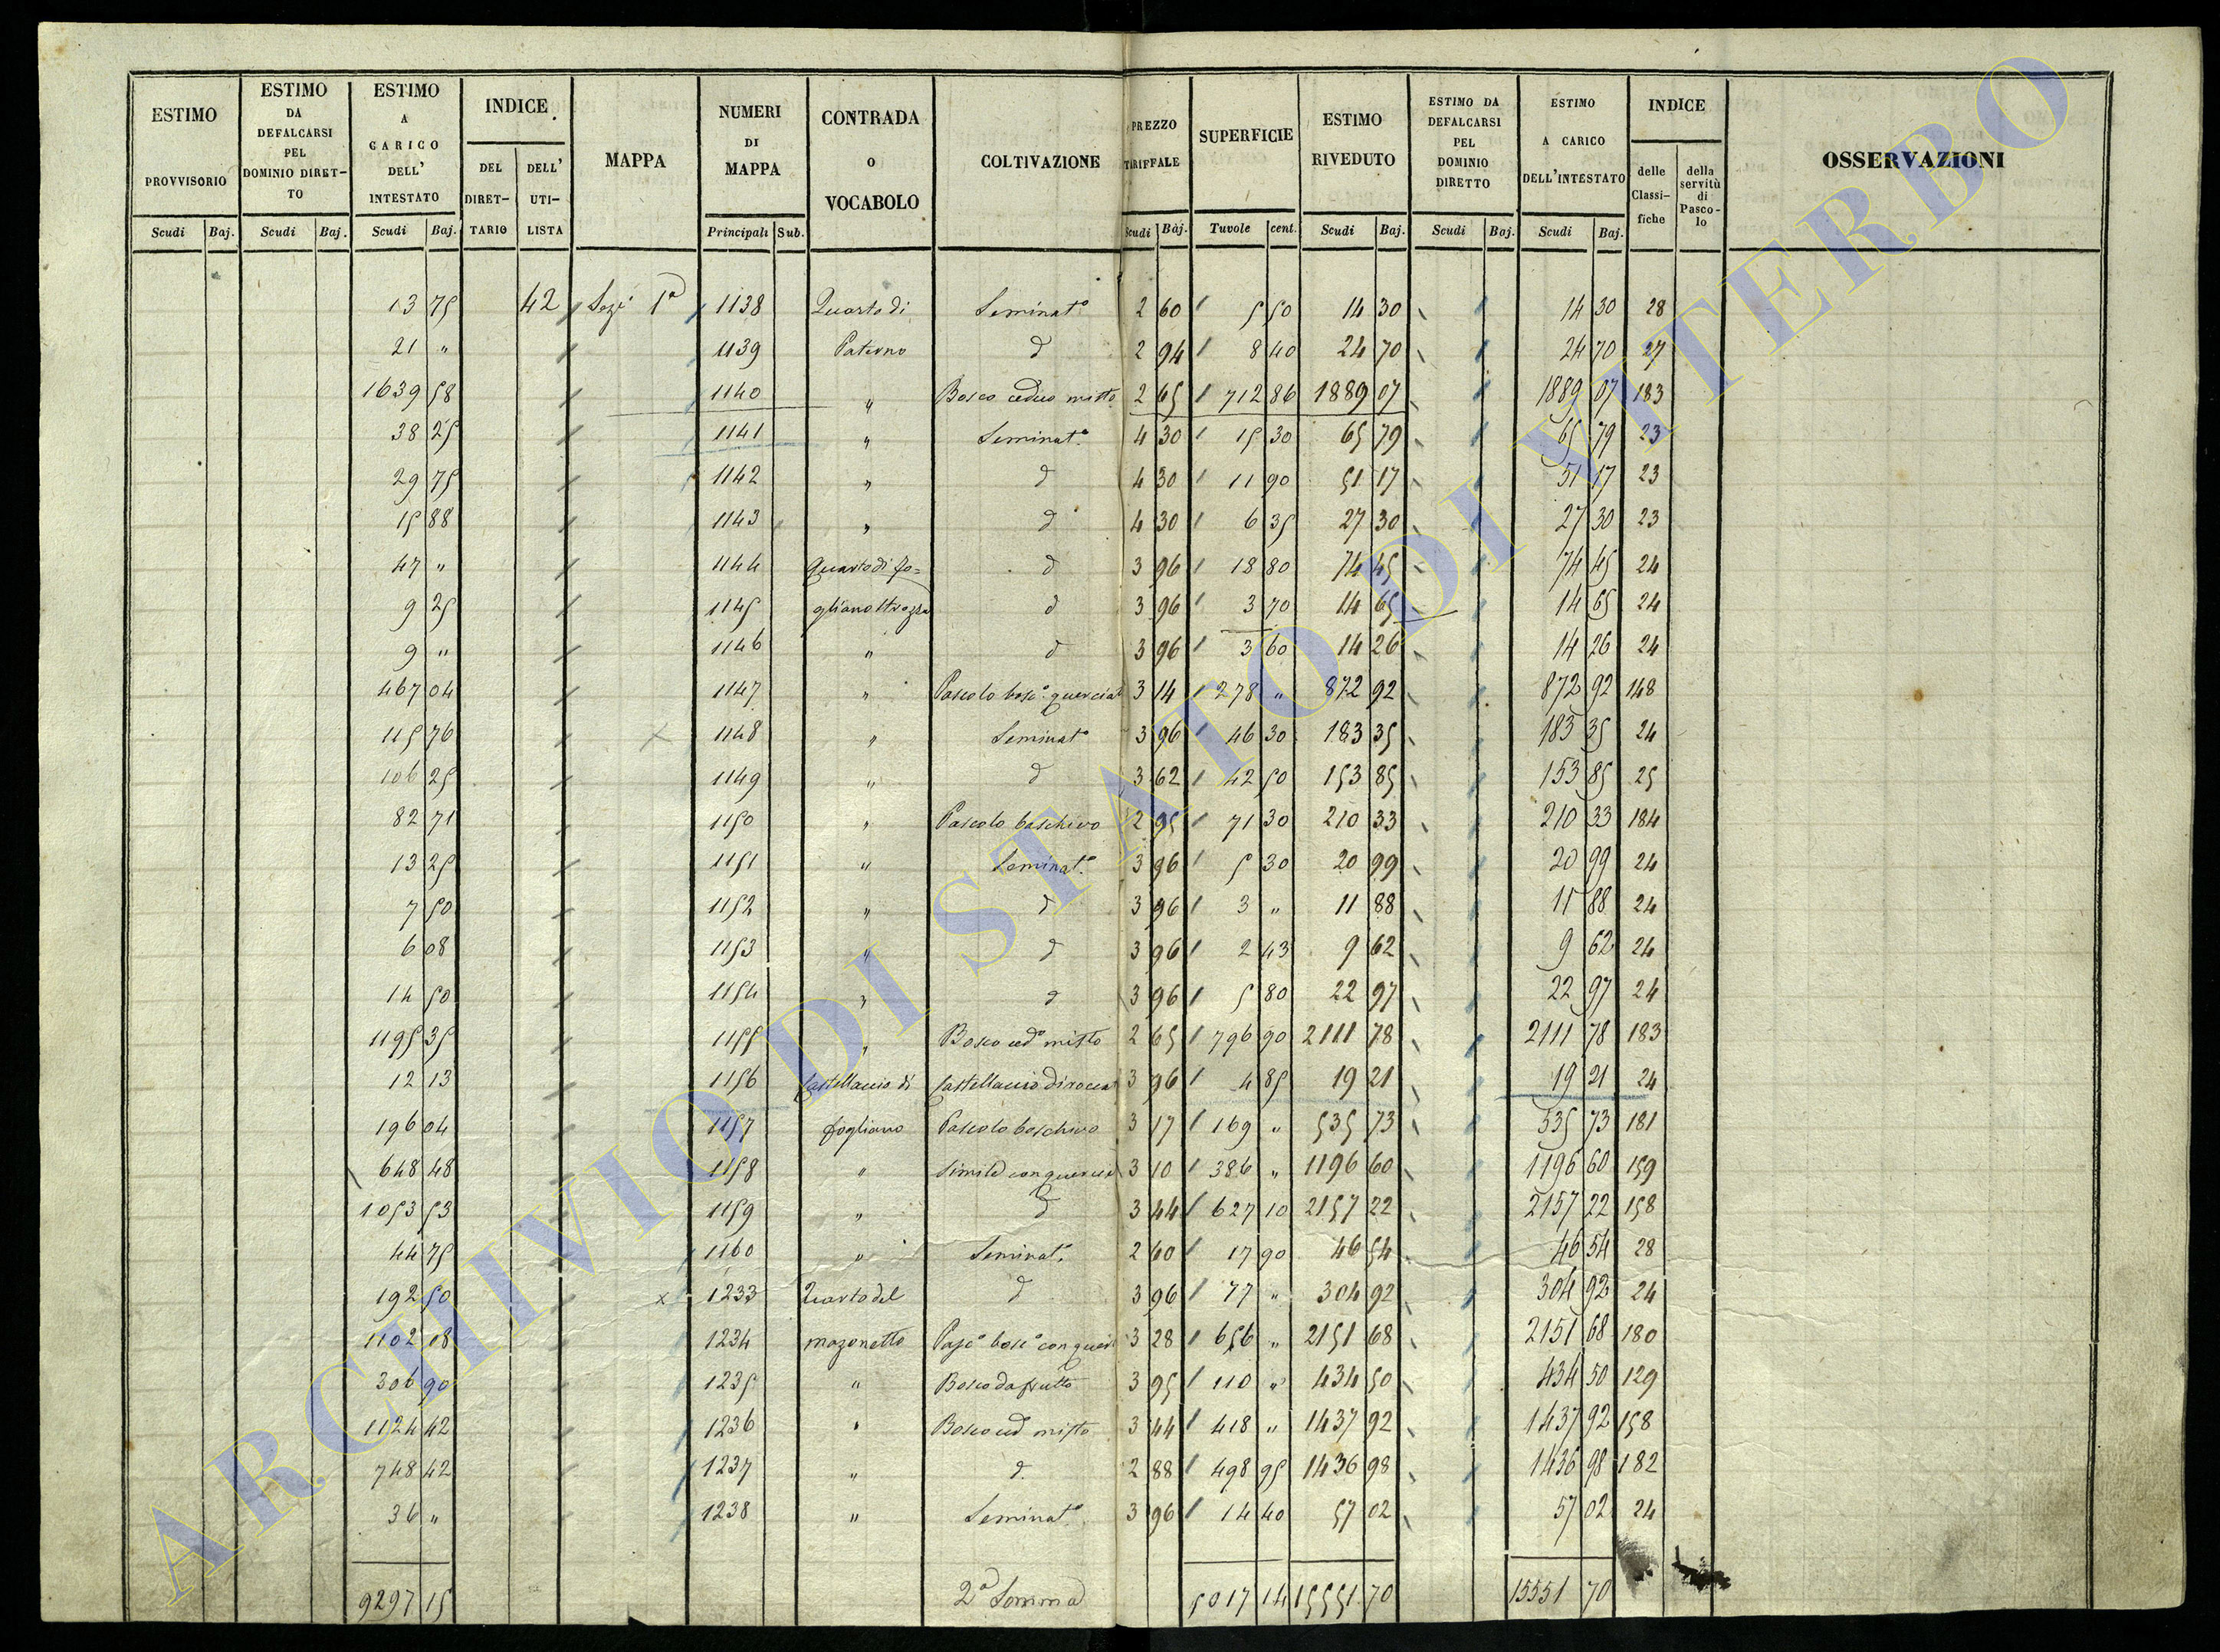 ESTIMO PROVVISORIO Scudi Baj.
ESTIMO DA DEFALCARSI PEL DOMINIO DIRETTO Scudi Baj.
ESTIMO A CARICO DELL' INTESTATO Scudi Baj.
INDICE DEL DIRETTARIO DELL' UTILISTA
MAPPA
NUMERI DI MAPPA Principali Sub.
CONTRADA O VOCABOLO
COLTIVAZIONE
PREZZO TARIFFALE Scudi Baj.
SUPERFICIE Tavole cent.
ESTIMO RIVEDUTO Scudi Baj.
ESTIMO DA DEFALCARSI PEL DOMINIO DIRETTO Scudi Baj.
ESTIMO A CARICO DELL'INTESTATO Scudi Baj.
INDICE delle Classifiche della servitù di Pascolo
OSSERVAZIONI
13 75 42 Sezi 1a 1138 Quarto di Seminato 2 60 5 50 14 30 14 30 28
21 " 1139 Paterno d 2 94 8 40 24 70 24 70 27
1639 58 1140 " Bosco ceduo misto 2 65 712 86 1889 07 1889 07 183
38 25 1141 " Seminato 4 30 15 30 65 79 65 79 23
29 75 1142 " d 4 30 11 90 51 17 51 17 23
15 88 1143 " d 4 30 6 35 27 30 27 30 23
47 " 1144 Quarto di fo= d 3 96 18 80 74 45 74 45 24
9 25 1145 gliano d 3 96 3 70 14 65 14 65 24
9 " 1146 " d 3 96 3 60 14 26 14 26 24
467 04 1147 " Pascolo bosco querciato 3 14 278 " 872 92 872 92 148
115 76 1148 " Seminato 3 96 46 30 183 35 183 35 24
106 25 1149 " d 3 62 42 50 153 85 153 85 25
82 71 1150 " Pascolo boschivo 2 95 71 30 210 33 210 33 184
13 25 1151 " Seminato 3 96 5 30 20 99 20 99 24
7 50 1152 " d 3 96 3 " 11 88 11 88 24
6 08 1153 " d 3 96 2 43 9 62 9 62 24
14 50 1154 " d 3 96 5 80 22 97 22 97 24
1195 35 1155 " Bosco cedo misto 2 65 796 90 2111 78 2111 78 183
12 13 1156 Castellaccio di Castellaccio diroccato 3 96 4 85 19 21 19 21 24
196 04 1157 fogliano Pascolo boschivo 3 17 169 " 535 73 535 73 181
648 48 1158 " Simile con querce 3 10 386 " 1196 60 1196 60 159
1053 53 1159 " d 3 44 627 10 2157 22 2157 22 158
44 75 1160 " Seminato 2 60 17 90 46 54 46 54 28
192 50 1233 Quarto del d 3 96 77 " 304 92 304 92 24
1102 08 1234 mazonetto Pasco bosco con querce 3 28 656 " 2151 68 2151 68 180
306 90 1235 " Bosco da frutto 3 95 110 " 434 50 434 50 129
1124 42 1236 " Bosco ced misto 3 44 418 " 1437 92 1437 92 158
748 42 1237 " d. 2 88 498 95 1436 98 1436 98 182
36 " 1238 " Seminato 3 96 14 40 57 02 57 02 24
9297 15 2a Somma 5017 14 15551 70 15551 70
ARCHIVIO DI STATO DI VITERBO